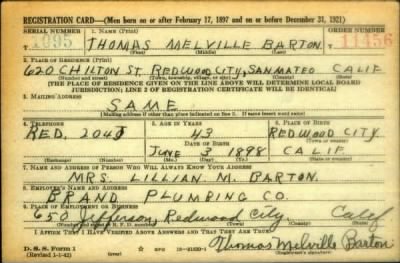 REGISTRATION CARD—(Men born on or after February 17, 1897 and on or before December 31, 1921)
SERIAL NUMBER 1. NAME (Print) ORDER NUMBER
1095 THOMAS MELVILLE BARTON 11456
(First) (Middle) (Last)
2. PLACE OF RESIDENCE (Print)
620 CHILTON ST. REDWOOD CITY, SAN MATEO CALIF
(Number and street) (Town, township, village, or city) (County) (State)
[THE PLACE OF RESIDENCE GIVEN ON THE LINE ABOVE WILL DETERMINE LOCAL BOARD
JURISDICTION; LINE 2 OF REGISTRATION CERTIFICATE WILL BE IDENTICAL]
3. MAILING ADDRESS
SAME
[Mailing address if other than place indicated on line 2. If same insert word same]
4. TELEPHONE 5. AGE IN YEARS 6. PLACE OF BIRTH
RED. 43 REDWOOD CITY
DATE OF BIRTH (Town or county)
JUNE 3 1898 CALIF
(Exchange) (Number) (Mo.) (Day) (Yr.) (State or country)
7. NAME AND ADDRESS OF PERSON WHO WILL ALWAYS KNOW YOUR ADDRESS
MRS. LILLIAN M. BARTON.
8. EMPLOYER'S NAME AND ADDRESS
BRAND PLUMBING CO.
9. PLACE OF EMPLOYMENT OR BUSINESS
650 Jefferson, Redwood City. Calif
(Number and street or R. F. D. number) (Town) (County) (State)
I AFFIRM THAT I HAVE VERIFIED ABOVE ANSWERS AND THAT THEY ARE TRUE.
D. S. S. Form 1
(Revised 1-1-42) Thomas Melville Barton